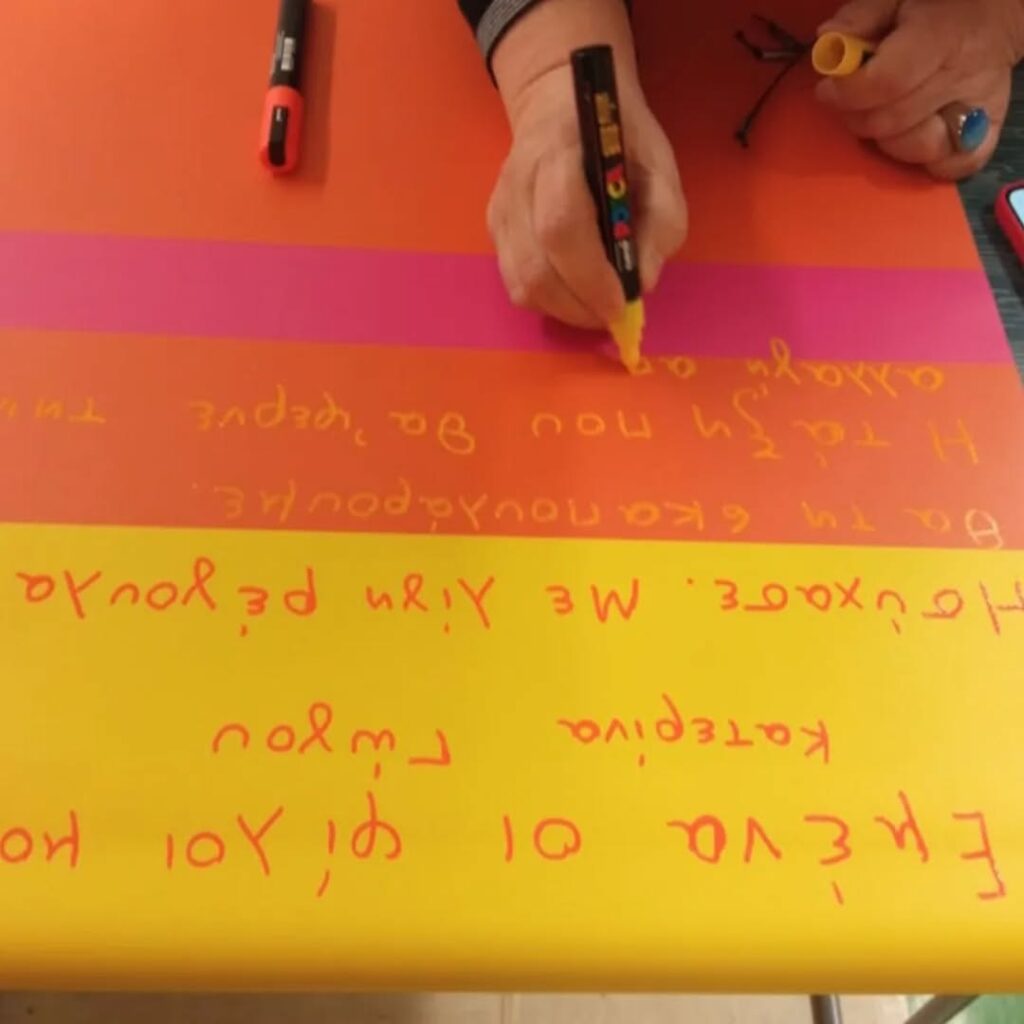 Εμένα οι φίλοι μο
Κατερίνα Γώγου
Ησύχασε. Με λίγη ρέγουλα
θα τη σκαπουλάρουμε.
Η τάξη που θα 'φερνε τη
αλλαγή